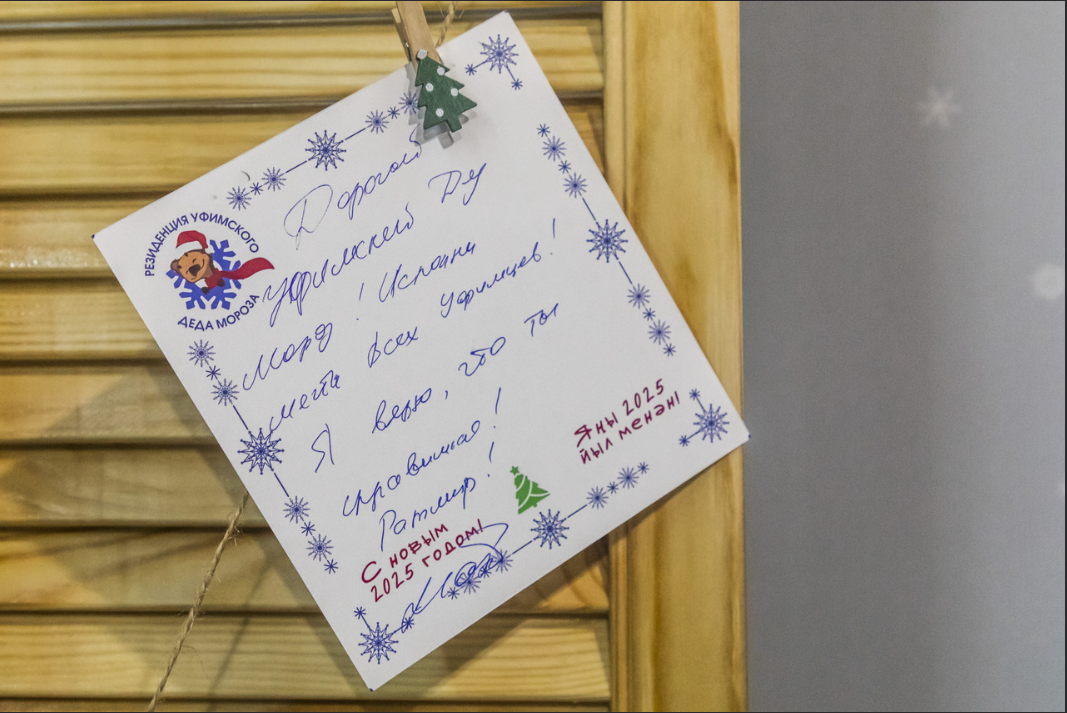 РЕЗИДЕНЦИЯ УФИМСКОГО
ДЕДА МОРОЗА
Дорогой
Уфимский Дед
Мороз! Исполни
мечты всех Уфимцев!
Я верю, что ты
справишься!
Ратмир!
С НОВЫМ
2025 ГОДОМ!
ЯҢЫ 2025
ЙЫЛ МЕНӘН!